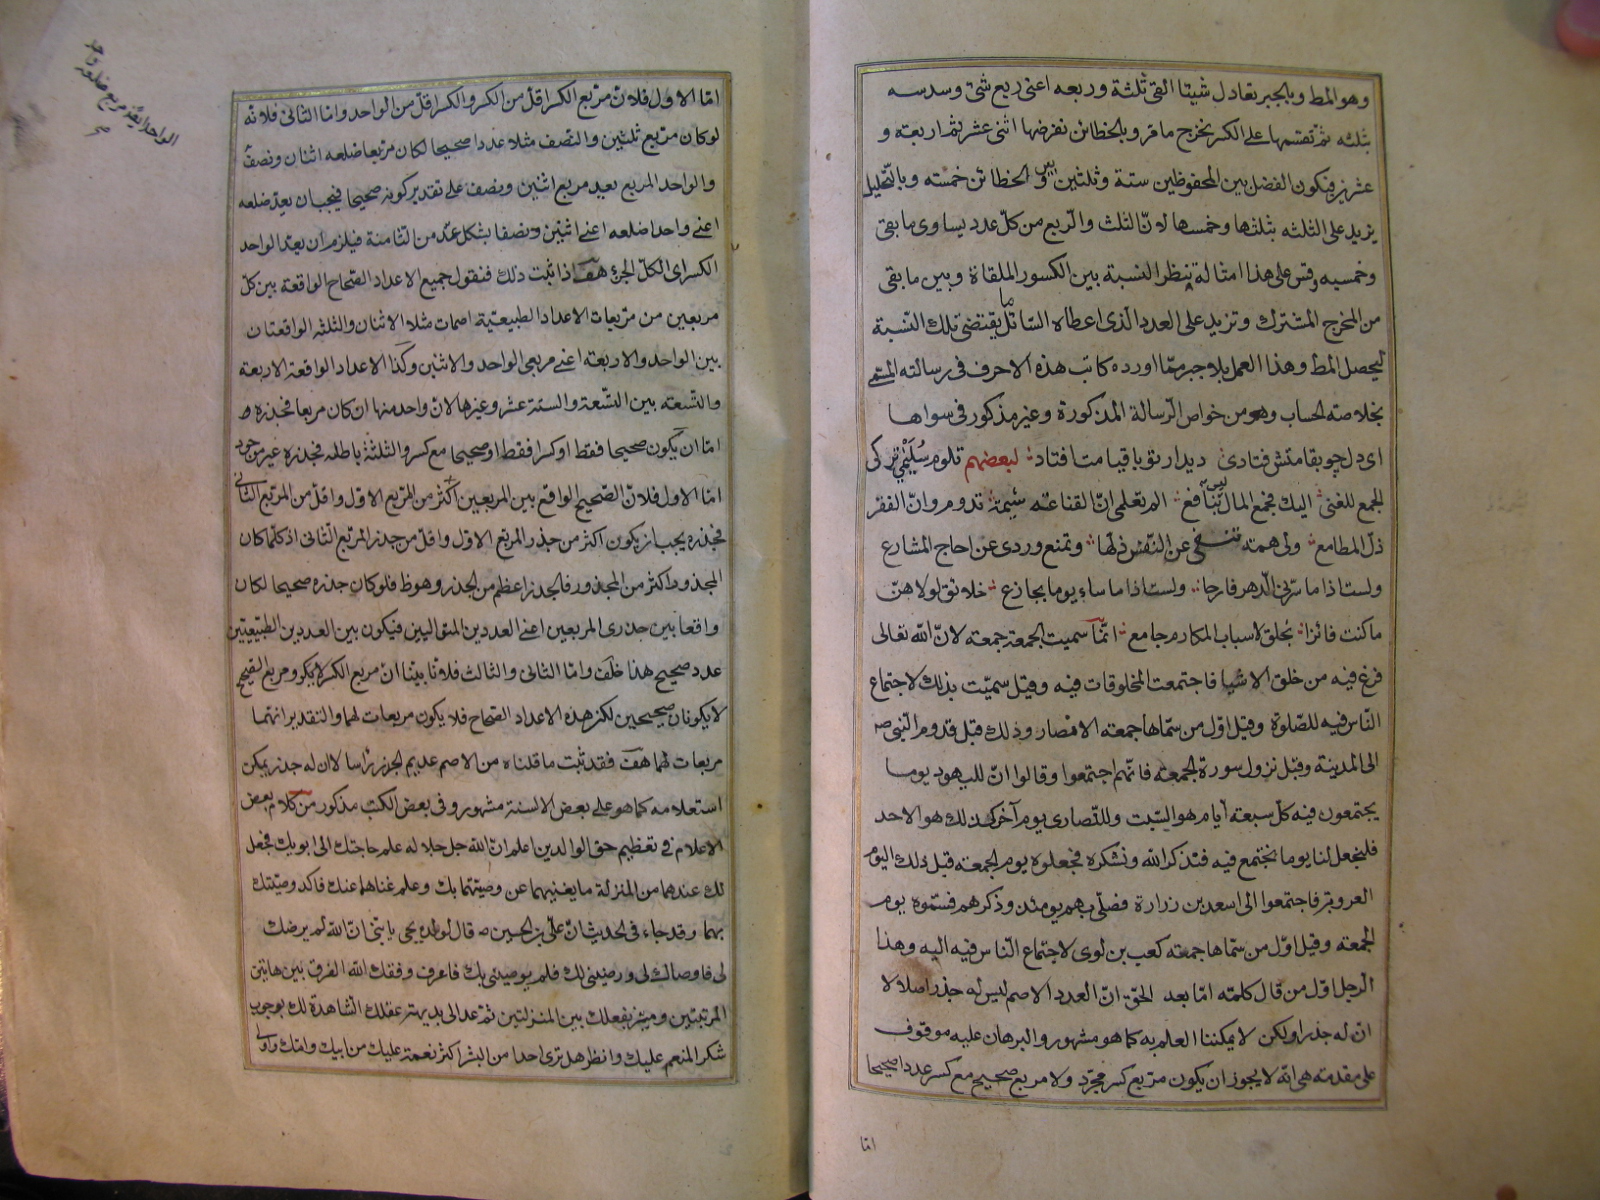 وهو المط وبالجبر تعادل شيئا القى ثلثه وربعه اعنى ربع شئ وسدسه
بثلثه ثم تقسمها على الكسر يخرج ما مر وبالخطائن نفرضها اثنى عشر ثم اربعة و
عشرين فيكون الفضل بين المحفوظين ستة وثلثين وبين الخطائن خمسة وبالتحليل
يزيد على الثلثه بثلثها وخمسها لان الثلث والربع من كل عدد يساوى ما بقى
وخمسيه وقس على هذا امثاله تنظر النسبة بين الكسور الملقاة وبين ما بقى
من المخرج المشترك وتزيد على العدد الذى اعطاه السائل ما يقتضى تلك النسبة
ليحصل المط وهذا العمل بلا جبر مما اورده كاتب هذه الاحرف فى رسالته المسمى
بخلاصة الحساب وهو من خواص الرسالة المذكورة وغير مذكور فى سواها
اى دل چو بقامتش فتادى ديدار تو باقيامت افتاد لبعضهم تلوم سليمى تركى
الجمع للغنى اليك فجمع المال ليس بنافع الم تعلمى ان القناعة شيمة تدوم وان الفقر
ذل المطامع ولى همة تنفى عن النفس ذلها وتمنع وردى عن احاج المشارع
ولست اذا ما سرنى الدهر فارحا ولست اذا ما ساء يوما بجازع خلائق لولا هن
ما كنت فائزا بخلق لاسباب المكارم جامع انما سميت الجمعة جمعة لان الله تعالى
فرغ فيه من خلق الاشيا فاجتمعت المخلوقات فيه وقيل سميت بذلك لاجتماع
الناس فيه للصلوة وقيل اول من سماها جمعة الانصار وذلك قبل قدوم النبى ص
الى المدينة وقبل نزول سورة الجمعة فانهم اجتمعوا وقالوا ان لليهود يوما
يجتمعون فيه كل سبعة أيام هو السبت وللنصارى يوم آخر كذلك هو الاحد
فليجعل لنا يوما نجتمع فيه فنذكر الله ونشكره فجعلوه يوم الجمعة قبل ذلك اليوم
العروبة فاجتمعوا الى اسعد بن زرارة فصلى بهم يومئذ وذكرهم فسموه يوم
الجمعة وقيل اول من سماها جمعة كعب بن لوى لاجتماع الناس فيه اليه وهذا
الرجل اول من قال كلمة اما بعد الحق ان العدد الاصم ليس له جذر اصلا لا
ان له جذرا ولكن لا يمكننا العلم به كما هو مشهور والبرهان عليه موقوف
على مقدمة هى انه لا يجوز ان يكون مربع كسر مجرد ولا مربع صحيح مع كسر عددا صحيحا
اما
اما الاول فلان مربع الكسر اقل من الكسر والكسر اقل من الواحد واما الثانى فلانه
لو كان مربع ثلثين والنصف مثلا عددا صحيحا لكان مربعا ضلعه اثنان ونصف
والواحد المربع يعد مربع اثنين ونصف على تقدير كونه صحيحا فيجب ان يعد ضلعه
اعنى واحدا ضلعه اعنى اثنين ونصفا بشكل عد من الثامنة فيلزم ان يعد الواحد
الكسر اى الكل الجزء هف اذا ثبت ذلك فنقول جميع الاعداد الصحاح الواقعة بين كل
مربعين من مربعات الاعداد الطبيعية اصمات مثلا الاثنان والثلثه الواقعتان
بين الواحد والاربعة اعنى مربعى الواحد والاثنين وكذا الاعداد الواقعة الاربعة
والتسعة بين التسعة والستة عشر وغيرها لان واحد منها ان كان مربعا فجذره
اما ان يكون صحيحا فقط او كسرا فقط او صحيحا مع كسر والثلثة باطلة فجذره غير موجود
اما الاول فلان الصحيح الواقع بين المربعين اكثر من المربع الاول واقل من المربع الثانى
فجذره يجب ان يكون اكثر من جذر المربع الاول واقل من جذر المربع الثانى اذ كلما كان
المجذور اكثر من المجذور فالجذر اعظم من الجذر وهو ظ فلو كان جذره صحيحا لكان
واقعا بين جذرى المربعين اعنى العددين المتواليين فيكون بين العددين الطبيعيين
عدد صحيح هذا خلف واما الثانى والثالث فلانا بينا ان مربع الكسر لا يكون ومربع الصحيح
لا يكونان صحيحين لكن هذه الاعداد الصحاح فلا يكون مربعات لهما والتقدير انهما
مربعات لهما هف فقد ثبت ما قلناه من الاصم عديم الجذر راسا لا ان له جذر يمكن
استعلامه كما هو على بعض الالسنة مشهور وفى بعض الكتب مذكور من كلام بعض
الاعلام فى تعظيم حق الوالدين اعلم ان الله جل جلاله علم حاجتك الى ابويك فجعل
لك عندهما من المنزلة ما يغنيهما عن وصيتهما بك وعلم غناهما عنك فاكد وصيتك
بهما وقد جاء فى الحديث ان على بن الحسين قال لولده يحيى يا بنى ان الله لم يرضك
لى فاوصاك لى ورضينى لك فلم يوصينى بك فاعرف وفقك الله الفرق بين هاتين
المرتبتين وميز بفعلك بين المنزلتين ثم عد الى بديهة عقلك الشاهدة لك بوجوب
شكر المنعم عليك وانظر هل ترى احدا من البشر اكثر نعمة عليك من ابيك وامك
الواحد ايضا مربع ضلعه واحد